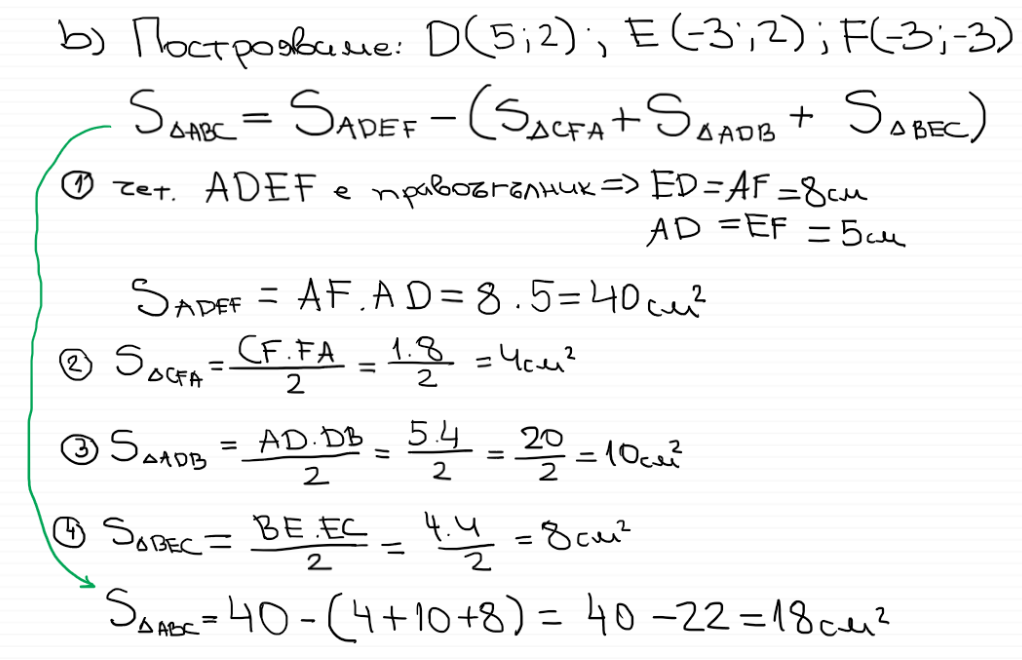 b) Построяваме: D(5;2); E(-3;2); F(-3;-3)
S△ABC = SADEF - (S△CFA + S△ADB + S△BEC)
① чет. ADEF е правоъгълник => ED = AF = 8см
AD = EF = 5см
SADEF = AF.AD = 8.5 = 40см²
② S△CFA = CF.FA/2 = 1.8/2 = 4см²
③ S△ADB = AD.DB/2 = 5.4/2 = 20/2 = 10см²
④ S△BEC = BE.EC/2 = 4.4/2 = 8см²
S△ABC = 40 - (4+10+8) = 40 - 22 = 18см²